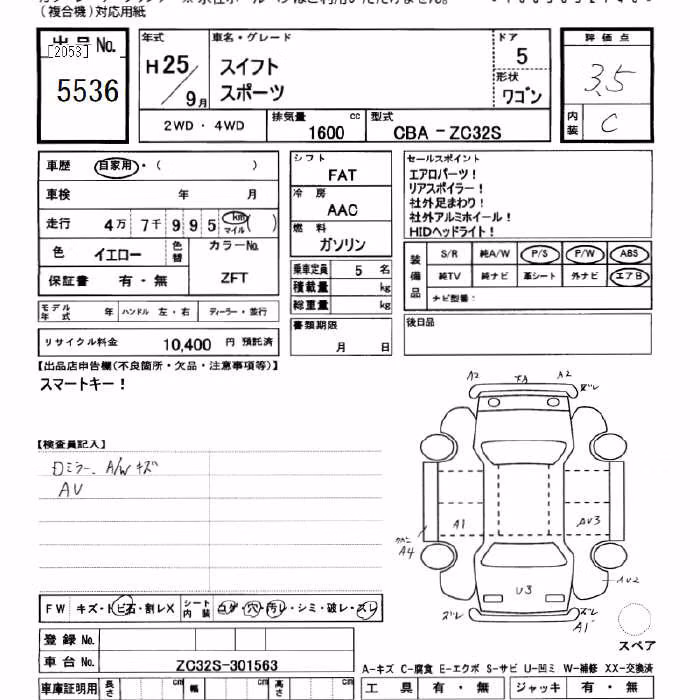 (複合機)対応用紙
出品 No.
[2053]
5536
年式
H25/9月
車名・グレード
スイフト
スポーツ
ドア
5
形状
ワゴン
評価点
3.5
内装
C
2WD ・ 4WD
排気量
1600
cc
型式
CBA - ZC32S
車歴
自家用・( )
車検
年 月
走行
4万 7千 9 9 5
km
マイル
( )
色
イエロー
色替
カラーNo.
ZFT
保証書
有・無
シフト
FAT
冷房
AAC
燃料
ガソリン
乗車定員
5 名
積載量
kg
総重量
kg
セールスポイント
エアロパーツ!
リアスポイラー!
社外足まわり!
社外アルミホイール!
HIDヘッドライト!
装備品
S/R 純A/W P/S P/W ABS
純TV 純ナビ 革シート 外ナビ エアB
ナビ型番:
モデル年式
年
ハンドル 左・右
ディーラー・並行
書類期限
月 日
後日品
リサイクル料金
10,400 円 預託済
【出品店申告欄(不良箇所・欠品・注意事項等)】
スマートキー!
【検査員記入】
Dミラー、A/Wキズ
AV
A2 A2 ズレ
A1 AV3
A4
AV2
U3
ズレ ズレ
A1
スペア
FW
キズ・トビ石・割レX
シート内装
コゲ・穴・汚レ・シミ・破レ・スレ
登録 No.
車台 No.
ZC32S-301563
A-キズ C-腐食 E-エクボ S-サビ U-凹ミ W-補修 XX-交換済
車庫証明用
長さ
cm
幅
cm
高さ
cm
工具
有・無
ジャッキ
有・無